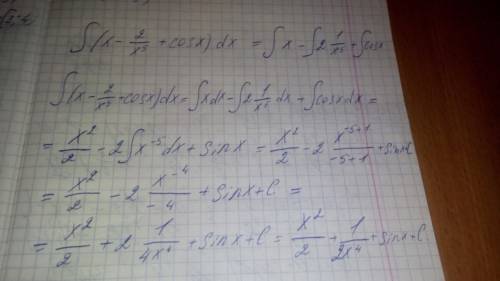 ∫(x - 2/x⁵ + cosx)dx = ∫x - ∫2 1/x⁵ + ∫cosx
∫(x - 2/x⁵ + cosx)dx = ∫xdx - ∫2 1/x⁵ dx + ∫cosxdx =
= x²/2 - 2∫x⁻⁵dx + sinx = x²/2 - 2 x⁻⁵⁺¹/-5+1 + sinx+C
= x²/2 - 2 x⁻⁴/-4 + sinx+C =
= x²/2 + 2 1/4x⁴ + sinx+C = x²/2 + 1/2x⁴ + sinx+C